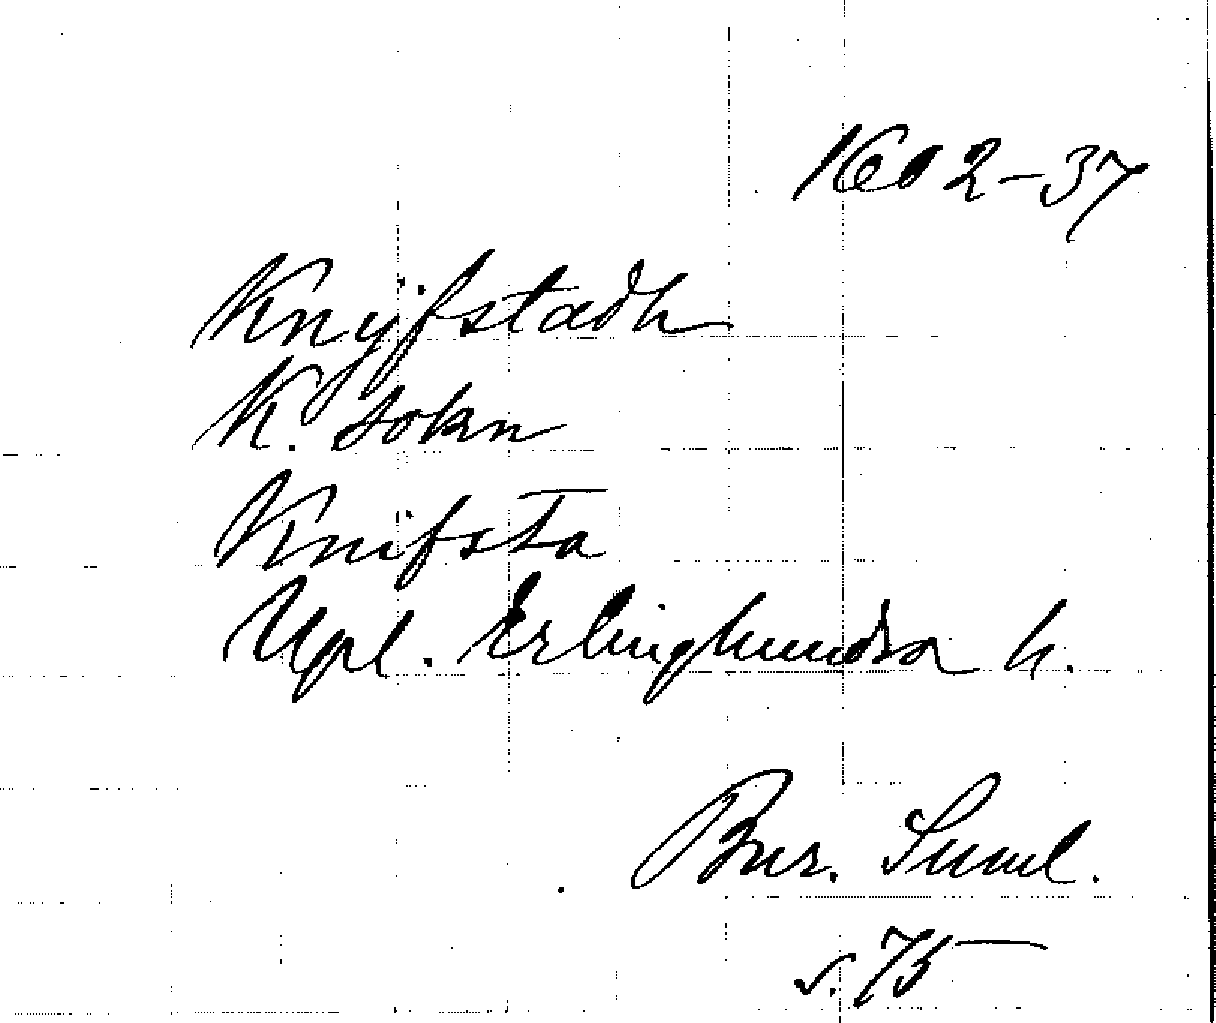 1602-37
Knÿfstadh
K. sokn
Knifsta
Upl. Erlinghundra h.
Bur. Suml.
s. 75